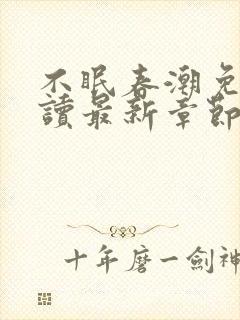 不眠春潮免
讀最新章節
十年磨一劍神